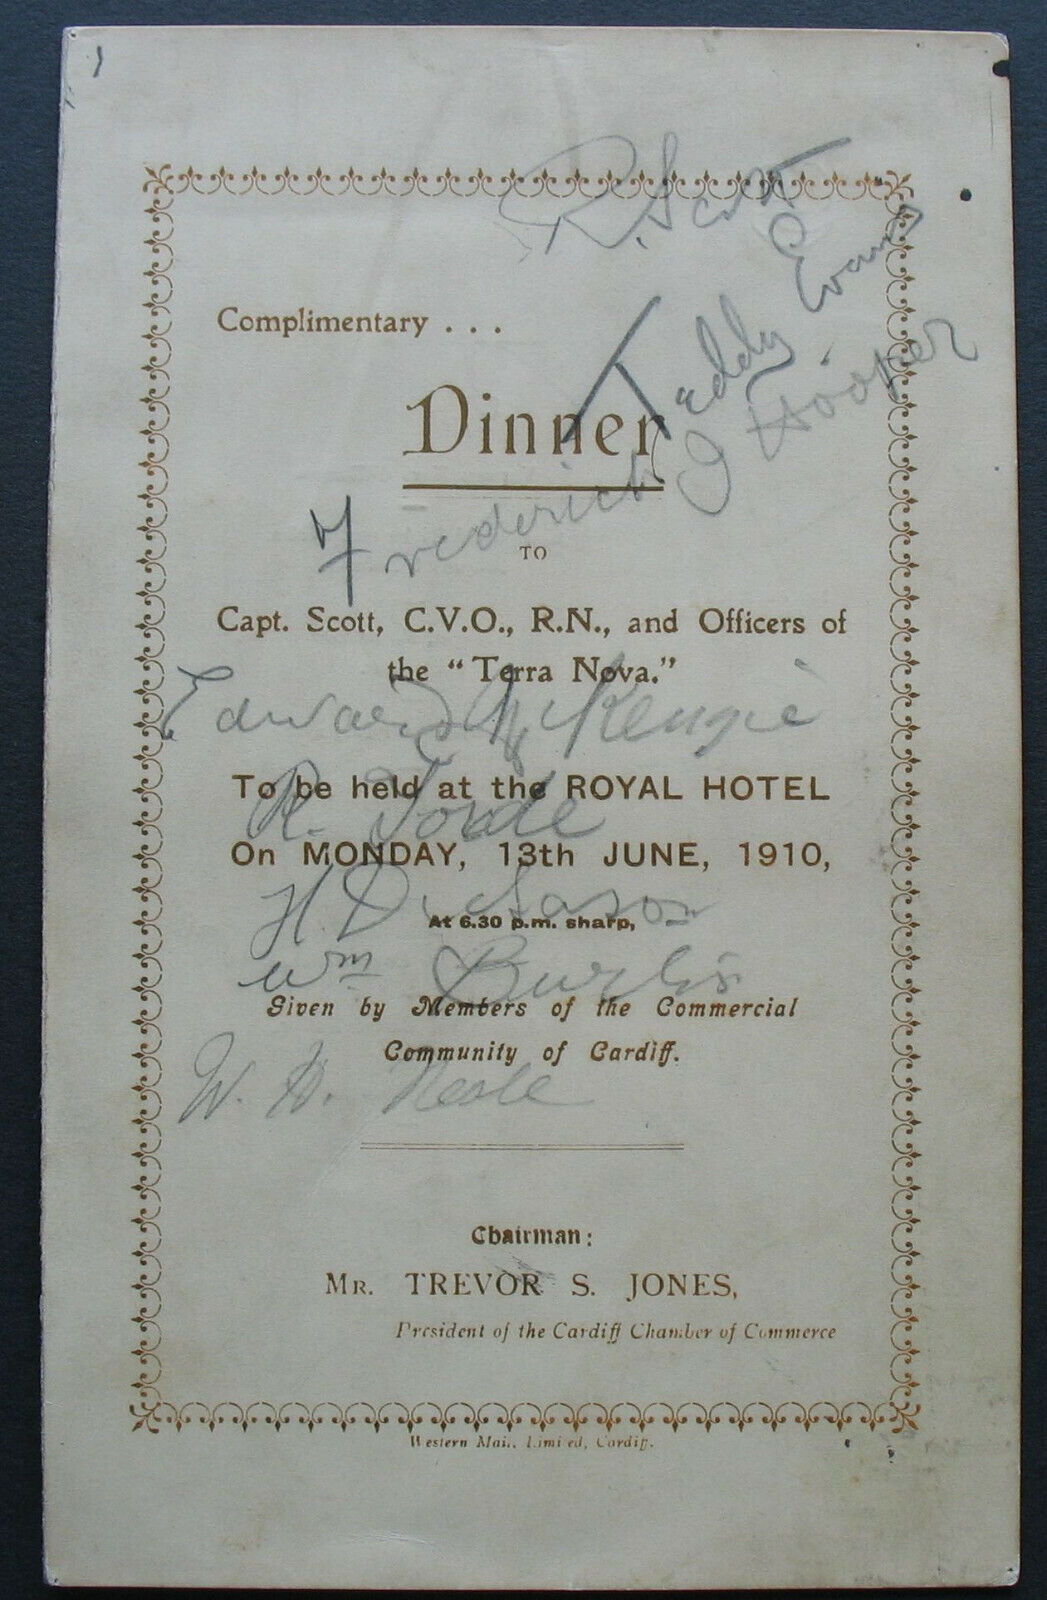 R. Scott
Teddy Evans
Complimentary . . .
Dinner
Frederick J Hooker
TO
Capt. Scott, C.V.O., R.N., and Officers of
the “Terra Nova.”
Edward McKenzie
To be held at the ROYAL HOTEL
R.
On MONDAY, 13th JUNE, 1910,
H. Dickason
At 6.30 p.m. sharp,
Wm Burlis
Given by Members of the Commercial
Community of Cardiff.
W. H. Neale
Chairman:
Mr. TREVOR S. JONES,
President of the Cardiff Chamber of Commerce
Western Mail, Limited, Cardiff.